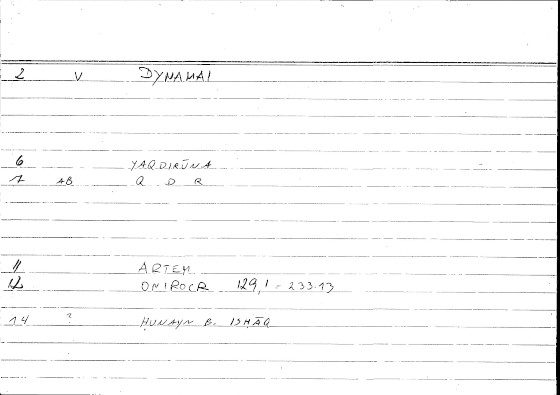 2 V DYNAMAI
6 YAQDIRŪNA
7 AB Q D R
11 ARTEM
12 ONIROCR 129,1 - 233.13
14 ? ḤUNAYN B. ISḤĀQ